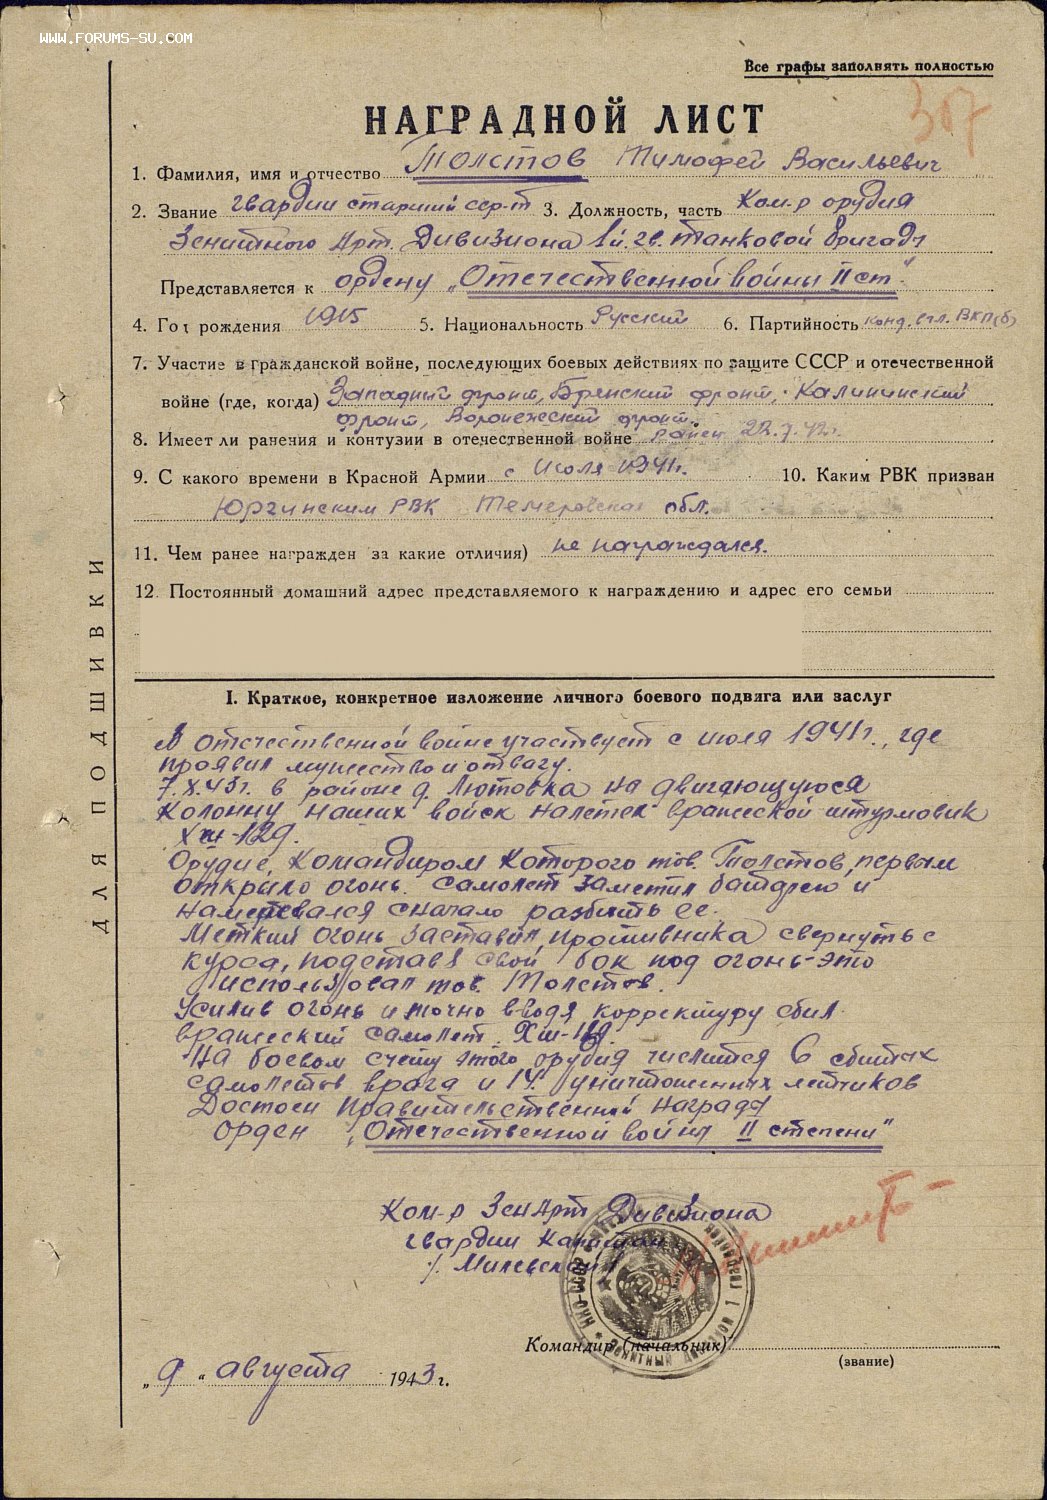 WWW.FORUMS-SU.COM
Все графы заполнять полностью
307
НАГРАДНОЙ ЛИСТ
1. Фамилия, имя и отчество Толстов Тимофей Васильевич
2. Звание гвардии старший сер-т 3. Должность, часть Ком-р орудия
Зенитного Арт. Дивизиона 1й гв. танковой бригады
Представляется к ордену „Отечественной войны II ст."
4. Год рождения 1915 5. Национальность Русский 6. Партийность канд. чл. ВКП(б)
7. Участие в гражданской войне, последующих боевых действиях по защите СССР и отечественной
войне (где, когда) Западный фронт, Брянский фронт, Калининский
фронт, Воронежский фронт.
8. Имеет ли ранения и контузии в отечественной войне ранен 22.7.42г.
9. С какого времени в Красной Армии с Июля 1941г. 10. Каким РВК призван
Юргинским РВК обл.
11. Чем ранее награжден за какие отличия) не награждался.
12. Постоянный домашний адрес представляемого к награждению и адрес его семьи
ДЛЯ ПОДШИВКИ
I. Краткое, конкретное изложение личного боевого подвига или заслуг
В отечественной войне участвует с июля 1941г., где
проявил мужество и отвагу.
в районе д. Лютовка на двигающуюся
колонну наших войск налетел вражеский штурмовик
Хш-129.
Орудие, командиром которого тов. Толстов, первым
открыло огонь. Самолет заметил батарею и
намеревался сначало разбить ее.
Меткий огонь заставил противника свернуть с
курса, подставя свой бок под огонь-это
использовал тов. Толстов.
Усилив огонь и точно вводя корректуру сбил
вражеский самолет Хш-129.
На боевом счету этого орудия числится 6 сбитых
самолетов врага и 14 уничтоженных летчиков
Достоен Правительственной награды
орден „Отечественной войны II степени"
Ком-р ЗенАрт Дивизиона
гвардии Капитан
/. Милевский /
Командир (начальник)
(звание)
„9" августа 1943 г.